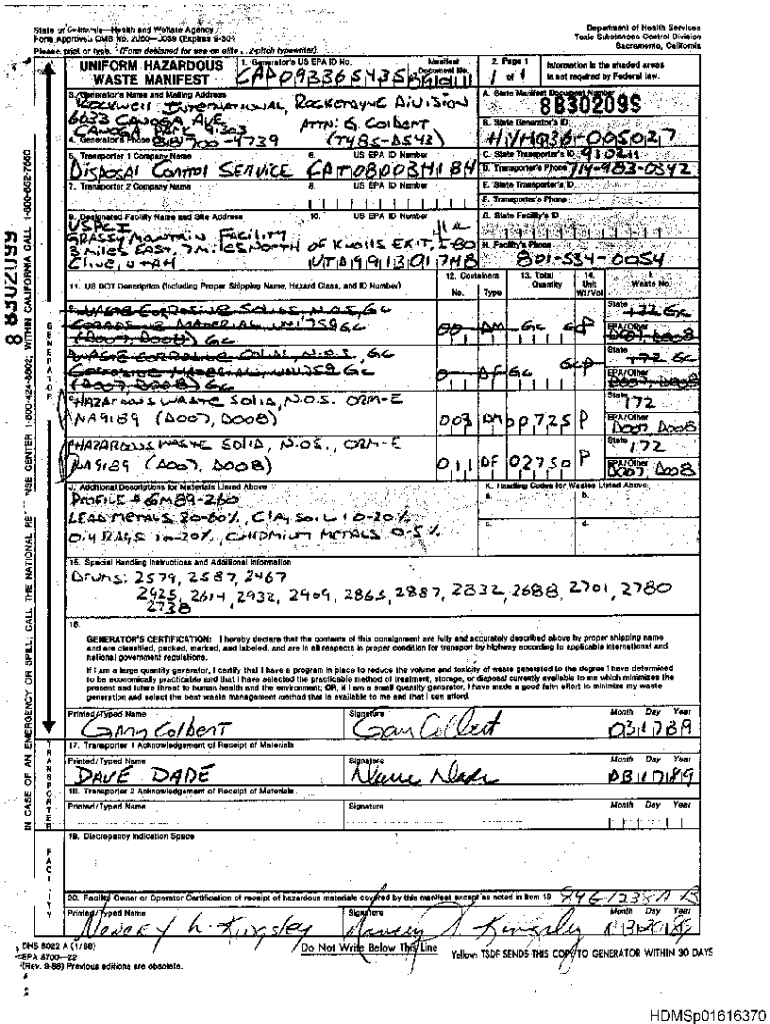 State of California—Health and Welfare Agency
Department of Health Services
Form Approved OMB No. 2050—0039 (Expires 9-30-
Toxic Substances Control Division
Please print or type. (Form designed for use on elite 12-pitch typewriter).
Sacramento, California
UNIFORM HAZARDOUS WASTE MANIFEST
1. Generator's US EPA ID No.
Manifest Document No.
2. Page 1
1 of 1
Information in the shaded areas is not required by Federal law.
3. Generator's Name and Mailing Address
Rockwell International, Rocketdyne Division
6633 Canoga Ave
Attn: G. Colbert
Canoga Park 91303
A. State Manifest Document Number
88302099
B. State Generator's ID
4. Generator's Phone 818 700-4739
5. Transporter 1 Company Name
6. US EPA ID Number
Disposal Control Service
C. State Transporter's ID
D. Transporter's Phone 714-983-0342
7. Transporter 2 Company Name
8. US EPA ID Number
E. State Transporter's ID
F. Transporter's Phone
9. Designated Facility Name and Site Address
10. US EPA ID Number
G. State Facility's ID
USPCI
Grassy Mountain Facility
3 miles East, 7 miles north of Knolls Exit, I-80
Clive, Utah
UTD991301748
H. Facility's Phone
801-534-0054
11. US DOT Description (Including Proper Shipping Name, Hazard Class, and ID Number)
12. Containers
No. Type
13. Total Quantity
14. Unit Wt/Vol
I. Waste No.
Waste Corrosive Solids, N.O.S., GC
Corrosive Material, UN1759 GC
(D007, D008) GC
State
172 GC
EPA/Other
D007, D008
Waste Corrosive Solid, N.O.S., GC
Corrosive Material, UN1759 GC
(D007, D008) GC
State
172 GC
EPA/Other
D007, D008
Hazardous Waste Solid, N.O.S. ORM-E
NA9189 (D007, D008)
003 DM 00725 P
State
172
EPA/Other
D007 D008
Hazardous Waste Solid, N.O.S., ORM-E
NA9189 (D007, D008)
011 DF 02750 P
State
172
EPA/Other
D007, D008
J. Additional Descriptions for Materials Listed Above
K. Handling Codes for Wastes Listed Above
a. b.
c. d.
Profile # GM89-260
Lead Metals 80-60%, Clay Soil 10-20%
Oily Rags 10-20%, Chromium Metals 0-5%
15. Special Handling Instructions and Additional Information
Drums: 2579, 2587, 2467
2925, 2614, 2932, 2409, 2865, 2887, 2832, 2688, 2701, 2780
2738
16.
GENERATOR'S CERTIFICATION: I hereby declare that the contents of this consignment are fully and accurately described above by proper shipping name
and are classified, packed, marked, and labeled, and are in all respects in proper condition for transport by highway according to applicable international and
national government regulations.
If I am a large quantity generator, I certify that I have a program in place to reduce the volume and toxicity of waste generated to the degree I have determined
to be economically practicable and that I have selected the practicable method of treatment, storage, or disposal currently available to me which minimizes the
present and future threat to human health and the environment; OR, if I am a small quantity generator, I have made a good faith effort to minimize my waste
generation and select the best waste management method that is available to me and that I can afford.
Printed/Typed Name
Signature
Month Day Year
Gary Colbert
Gary Colbert
031789
17. Transporter 1 Acknowledgement of Receipt of Materials
Printed/Typed Name
Signature
Month Day Year
Dave Dade
Dave Dade
031789
18. Transporter 2 Acknowledgement of Receipt of Materials
Printed/Typed Name
Signature
Month Day Year
19. Discrepancy Indication Space
20. Facility Owner or Operator Certification of receipt of hazardous materials covered by this manifest except as noted in Item 19.
Printed/Typed Name
Signature
Month Day Year
Nancy L. Kingsley
Nancy L. Kingsley
DHS 8022 A (1/88)
EPA 8700—22
(Rev. 9-88) Previous editions are obsolete.
Do Not Write Below This Line
Yellow: TSDF SENDS THIS COPY TO GENERATOR WITHIN 30 DAYS
IN CASE OF AN EMERGENCY OR SPILL, CALL THE NATIONAL RE NSE CENTER 1-800-424-8802; WITHIN CALIFORNIA CALL 1-800-852-7550
88302099
GENERATOR
TRANSPORTER
FACILITY
HDMSp01616370